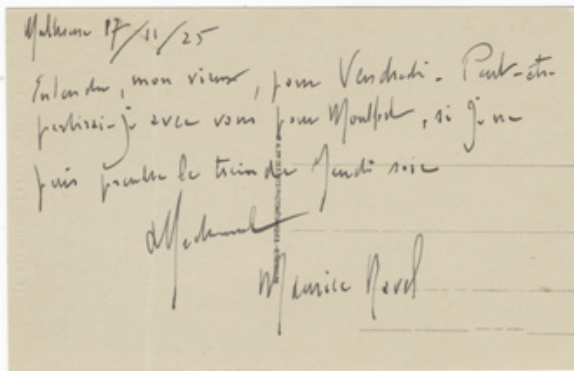 Mulhouse 17/11/25
Entendu, mon vieux, pour Vendredi - Peut-être
partirai-je avec vous pour Montfort, si je ne
puis prendre le train de Jeudi soir
Affectueusement
Maurice Ravel